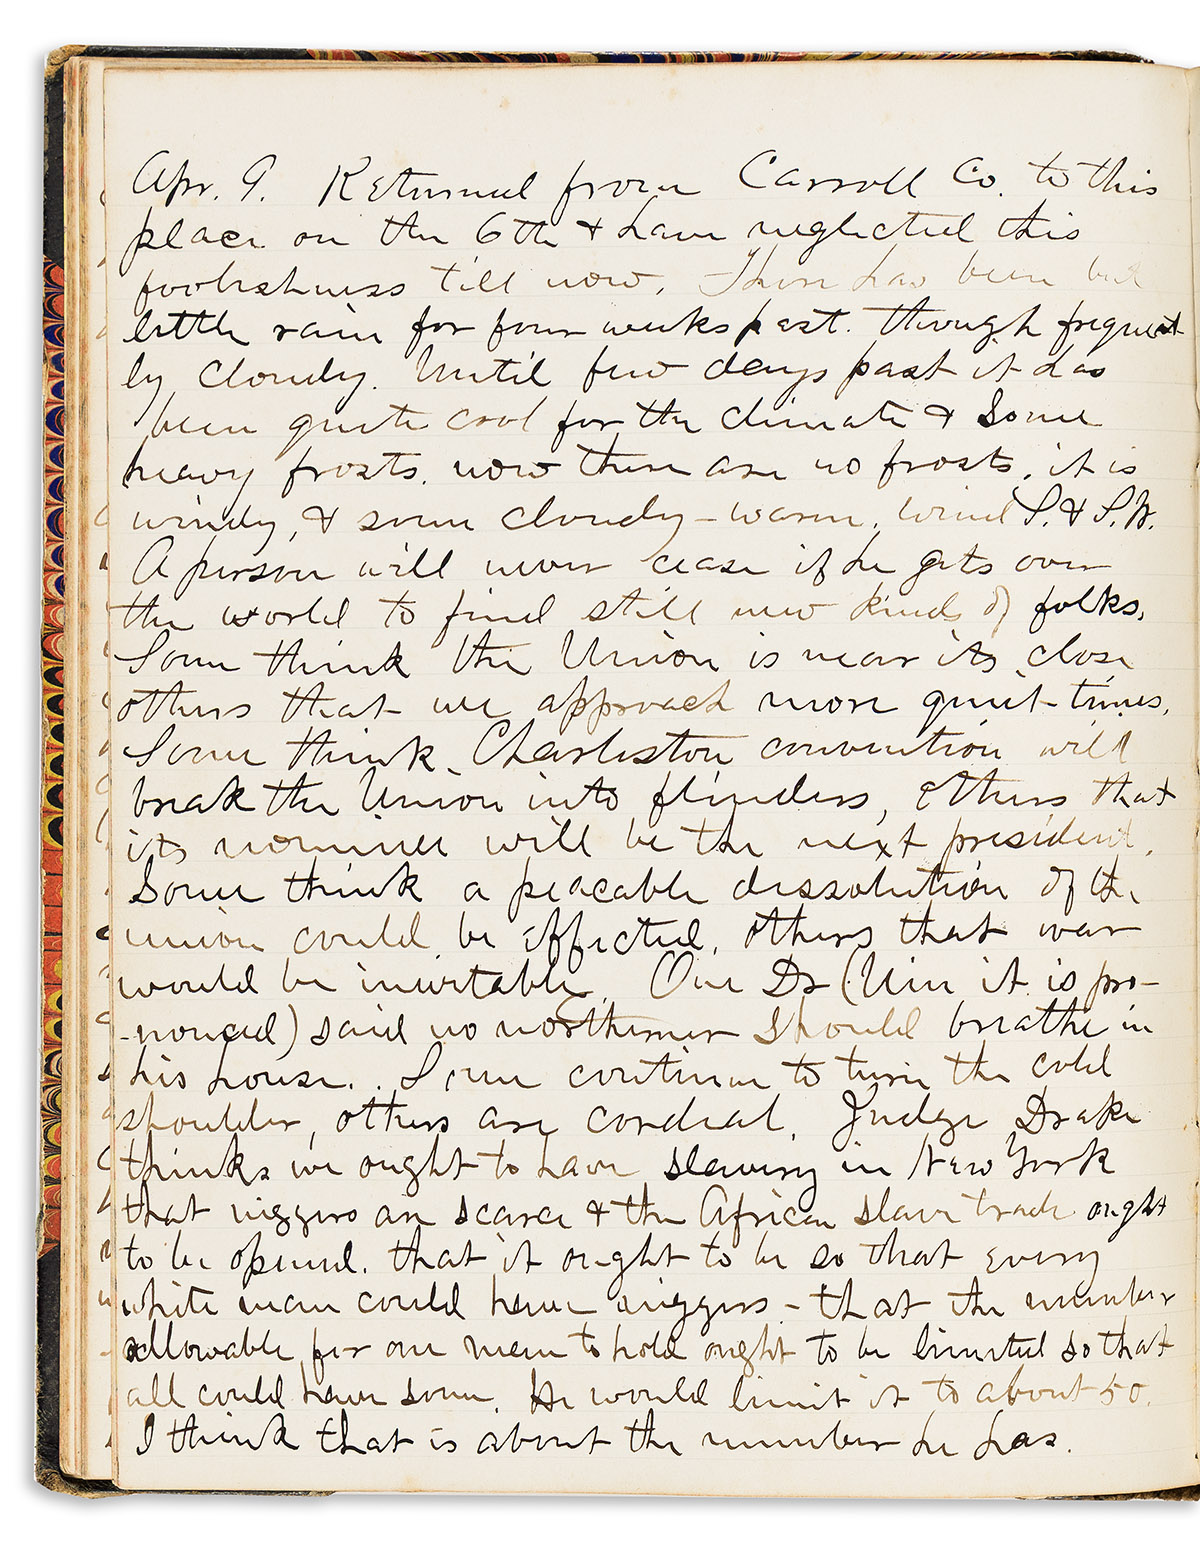 Apr. 9. Returned from Carroll Co. to this
place on the 6th & have neglected this
foolishness till now. There has been but
little rain for four weeks past. though frequent
ly cloudy. Until few days past it has
been quite cool for the climate & some
heavy frosts. now there are no frosts, it is
windy, & some cloudy - warm, wind S. & S.W.
A person will never cease if he gets over
the world to find still new kinds of folks.
Some think the Union is near its close
others that we approach more quiet times.
Some think Charleston convention will
break the Union into flinders, others that
its nominee will be the next president.
Some think a peacable dissolution of the
union could be effected, others that war
would be inevitable. One Dr (Urin it is pro-
-nounced) said no northerner should breathe in
his house. . Some continue to turn the cold
shoulder, others are cordial. Judge Drake
thinks we ought to have slavery in New York
that niggers are scarce & the African slave trade ought
to be opened. that it ought to be so that every
white man could have niggers - that the number
allowable for one man to hold ought to be limited so that
all could have some. He would limit it to about 50.
I think that is about the number he has.